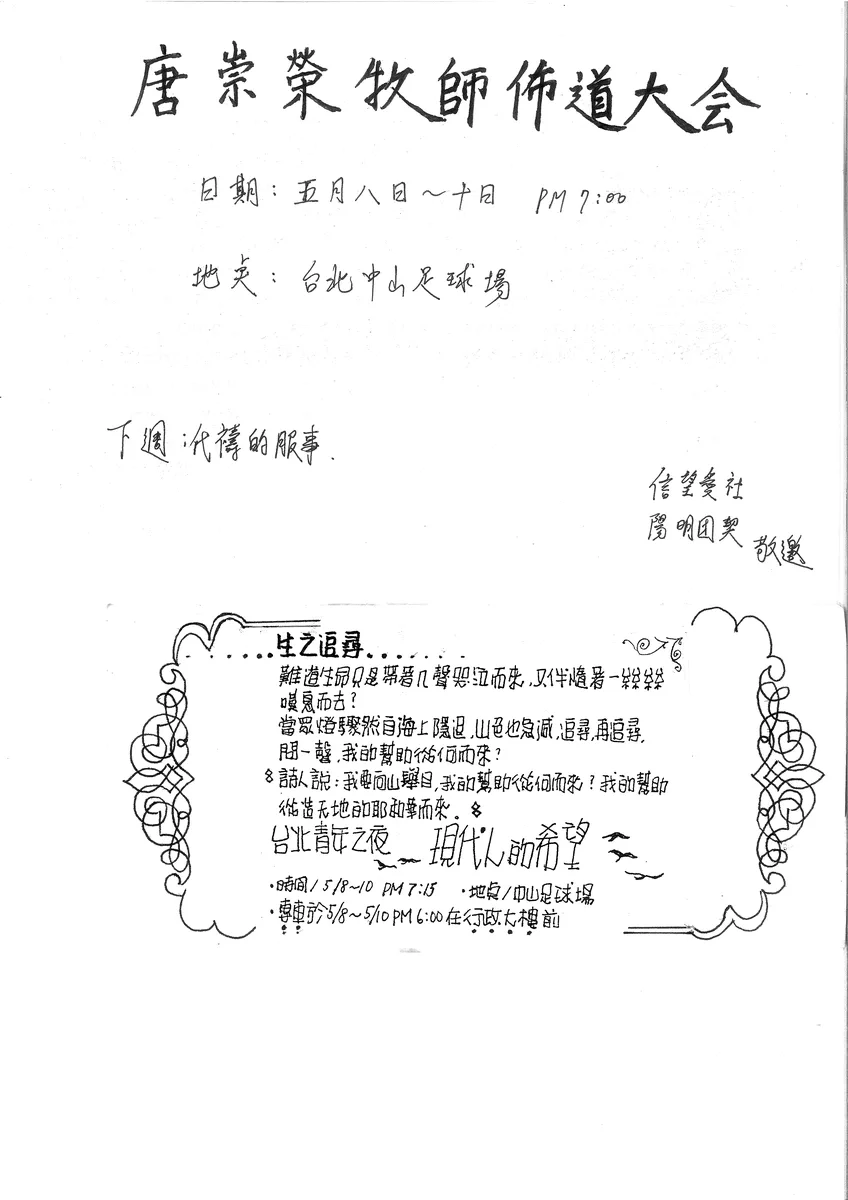 唐崇榮牧師佈道大会
日期：五月八日～十日 PM 7:00
地点：台北中山足球場
下週：代禱的服事.
信望愛社
陽明团契
敬邀
生之追尋
難道生命只是帶着几聲哭泣而來,又伴隨著一絲絲
嘆息而去?
當眾燈驟然自海上隱退,山色也急滅,追尋,再追尋,
問一聲,我的幫助從何而來?
詩人說:我要向山舉目,我的幫助從何而來?我的幫助
從造天地的耶和華而來。
台北青年之夜 現代人的希望
·時間/5/8~10 PM 7:15 ·地点/中山足球場
·專車於5/8~5/10 PM 6:00在行政大樓前